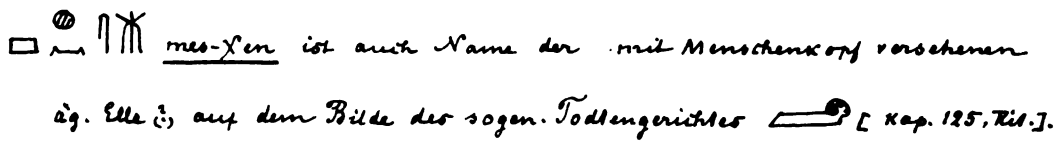 mes-χen ist auch Name der mit Menschenkopf versehenen
äg. Elle (?) auf dem Bilde des sogen. Todtengerichtes [Kap. 125, Rit.].